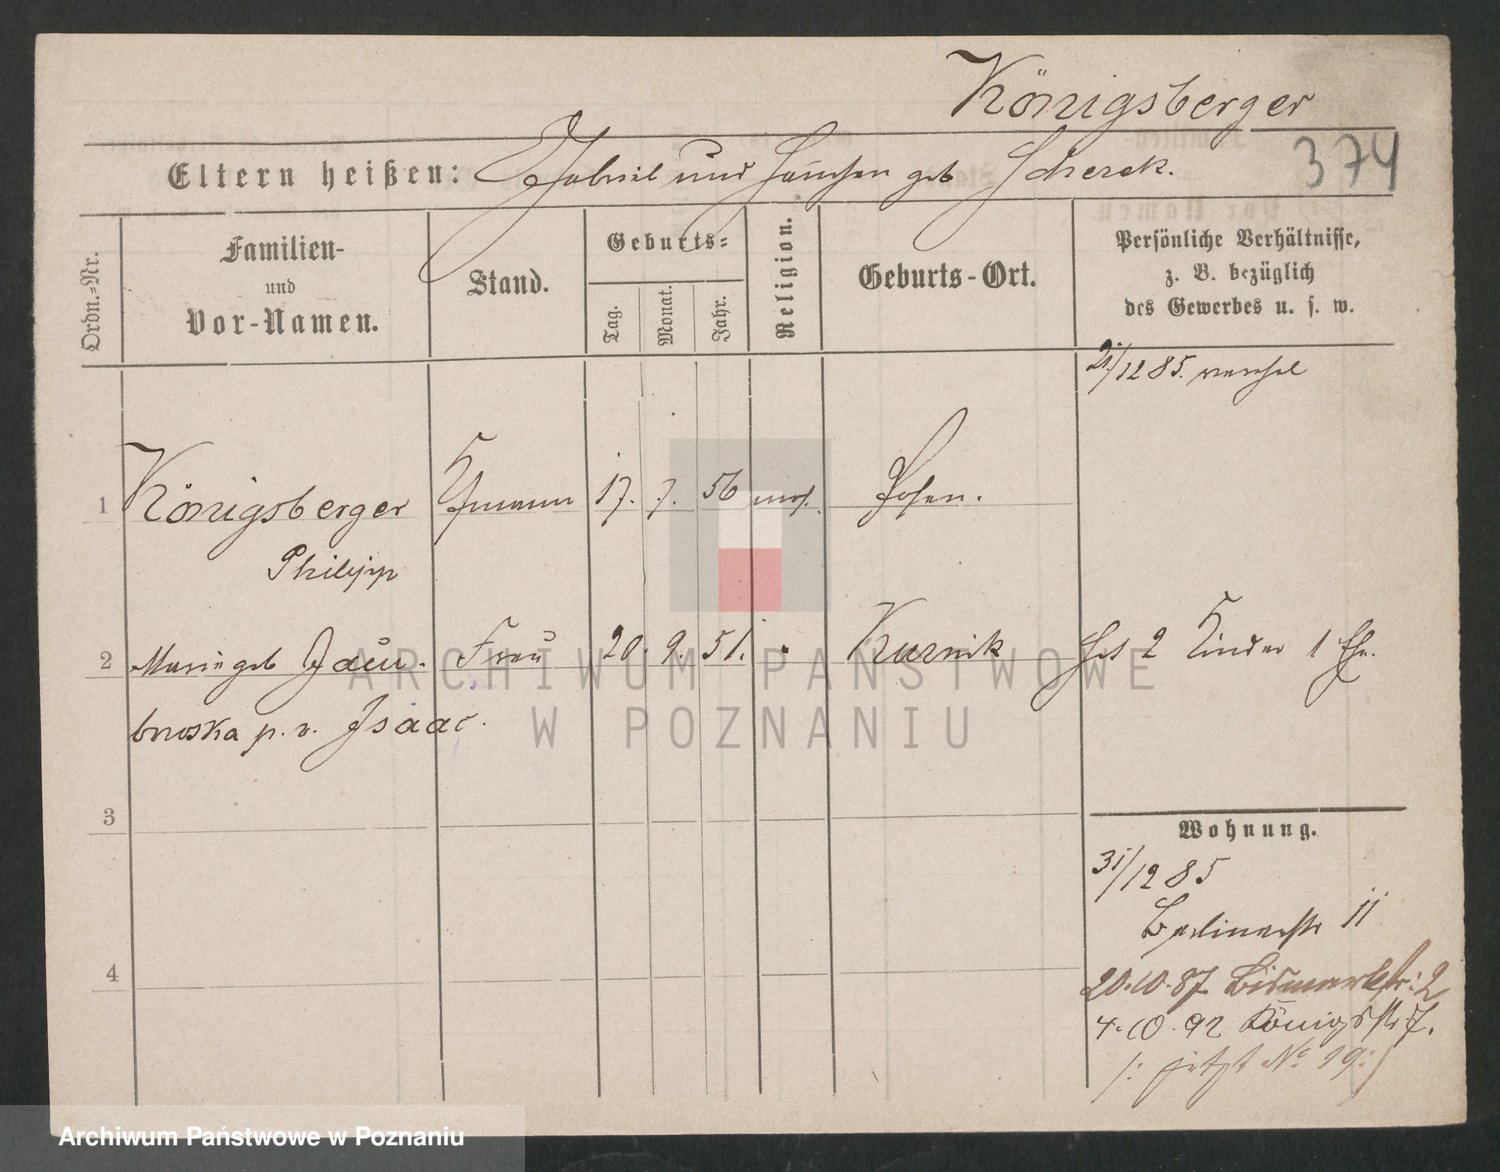 Königsberger
374
Eltern heißen: Gabriel und Hänchen geb Scherek.
Ordn.-Nr.
Familien-
und
Vor-Namen.
Stand.
Geburts-
Tag.
Monat.
Jahr.
Religion.
Geburts-Ort.
Persönliche Verhältnisse,
z. B. bezüglich
des Gewerbes u. s. w.
21/12 85.
1 Königsberger Kfmann 17. 7. 56 mos. Posen.
Philipp
2 Marie geb Frau 20. 9. 51. " Kurnik hat 2 Kinder 1 Ehe.
p. v. Isaac.
3
4
Wohnung.
31/12 85
Berlinerstr 11
20.10.87 Bismarkstr: 2
4.10.92 Königsstr 7.
/: jetzt No 19 :/
ARCHIWUM PAŃSTWOWE
W POZNANIU
Archiwum Państwowe w Poznaniu